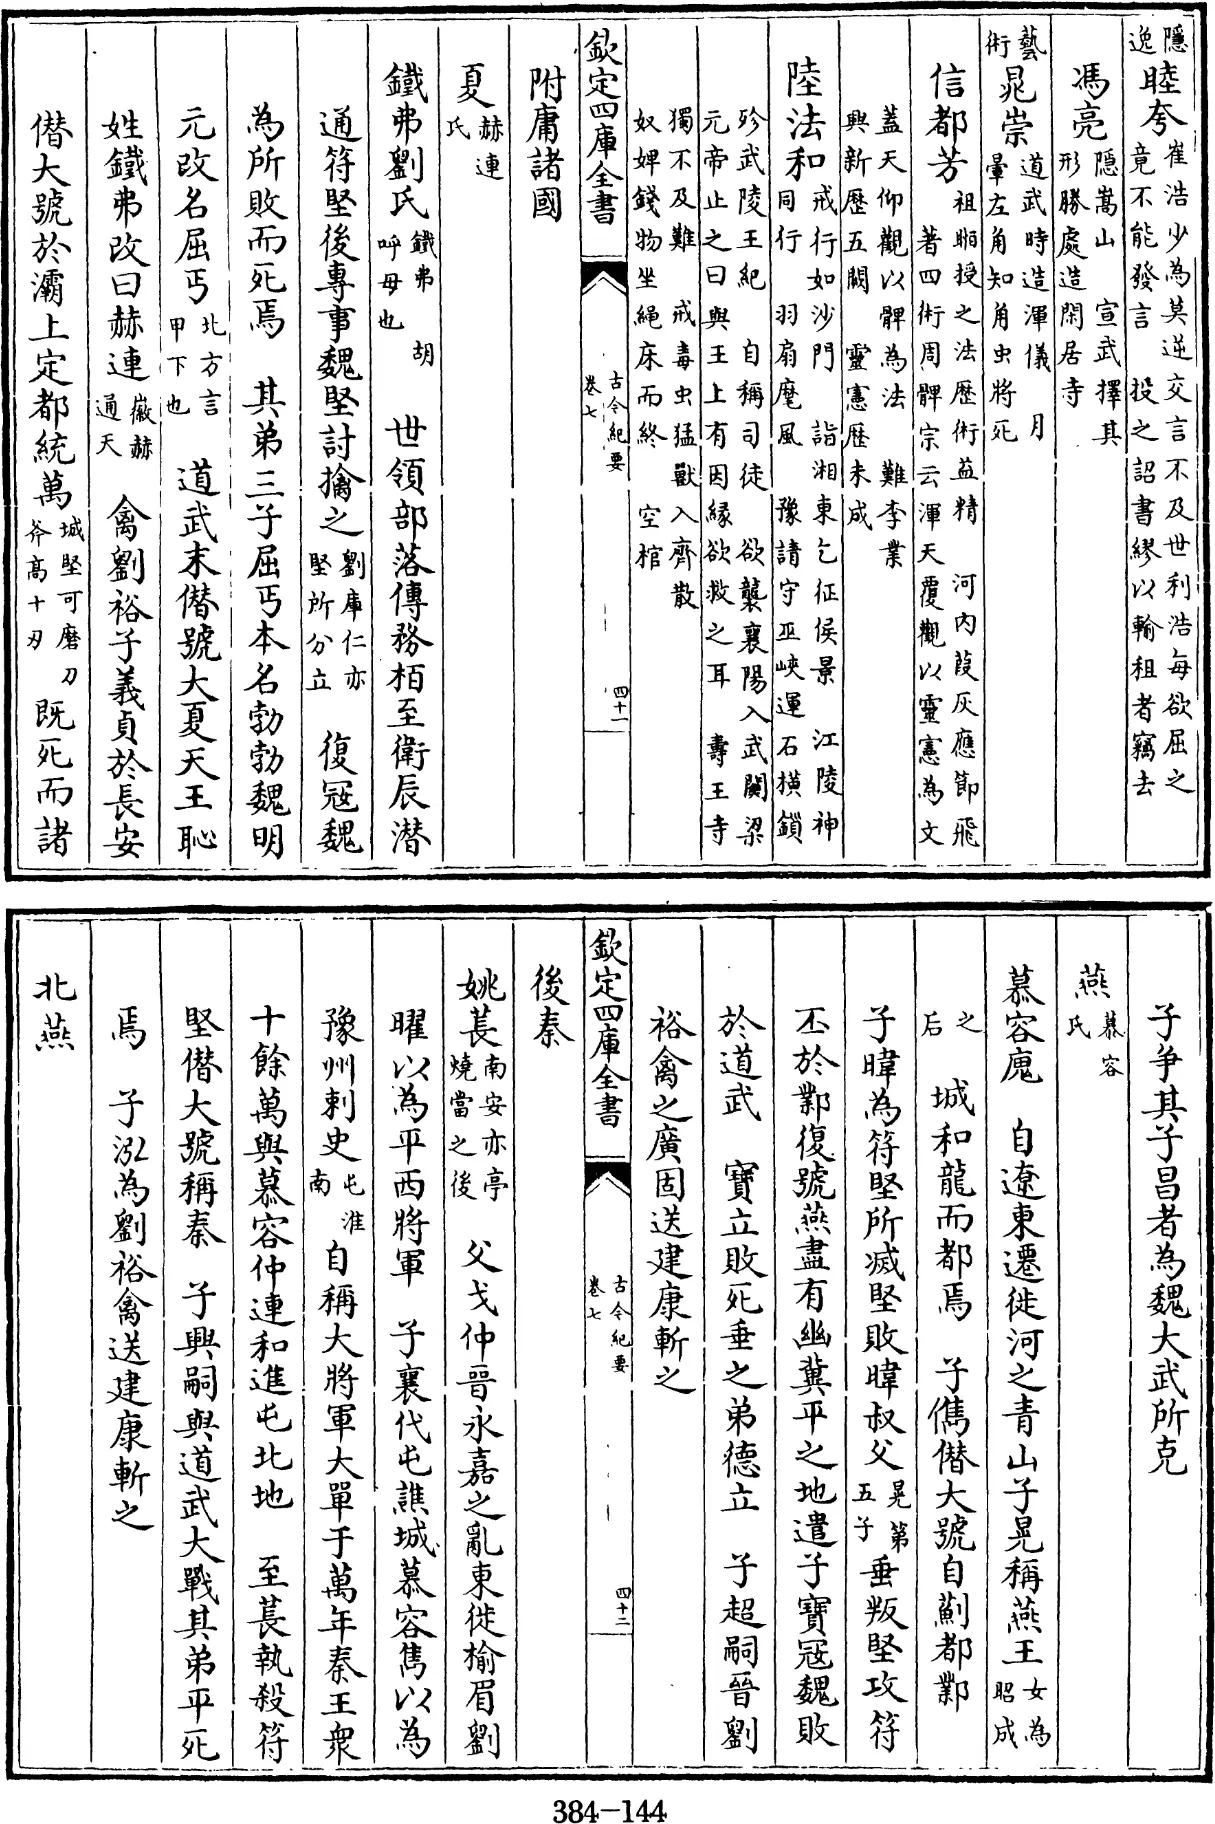 隱逸 眭夸 崔浩少為莫逆交言不及世利浩每欲屈之竟不能發言 投之詔書繆以輸租者竊去
馮亮 隱嵩山 宣武擇其形勝處造閑居寺
藝術 晁崇 道武時造渾儀 月暈左角知角虫將死
信都芳 祖暅授之法歷術益精 河内葭灰應節飛著四術周髀宗云渾天覆觀以靈憲為文
蓋天仰觀以髀為法 難李業興新歷五闕 靈憲歷未成
陸法和 戒行如沙門 詣湘東乞征侯景 江陵神同行 羽扇麾風 豫請守巫峽運石橫鎖
殄武陵王紀 自稱司徒 欲襲襄陽入武關梁元帝止之曰與王上有因縁欲救之耳 壽王寺
獨不及難 戒毒虫猛獸入齊散奴婢錢物坐繩床而終 空棺
欽定四庫全書 古今紀要 卷七 四十一
附庸諸國
夏 赫連氏
鐵弗劉氏 鐵弗 胡呼母也 世領部落傳務栢至衛辰潜
通符堅後專事魏堅討擒之 劉庫仁亦堅所分立 復冦魏
為所敗而死焉 其弟三子屈丐本名勃勃魏明
元改名屈丐 北方言甲下也 道武末僣號大夏天王恥
姓鐵弗改曰赫連 徽赫通天 禽劉裕子義貞於長安
僣大號於灞上定都統萬 城堅可磨刀斧高十刃 既死而諸
子爭其子昌者為魏大武所克
燕 慕容氏
慕容廆 自遼東遷徙河之青山子晃稱燕王 女為昭成
之后 城和龍而都焉 子儁僣大號自薊都鄴
子暐為符堅所滅堅敗暐叔父 晃第五子 垂叛堅攻符
丕於鄴復號燕盡有幽冀平之地遣子寶冦魏敗
於道武 寶立敗死垂之弟德立 子超嗣晉劉
裕禽之廣固送建康斬之
欽定四庫全書 古今紀要 卷七 四十二
後秦
姚萇 南安亦亭燒當之後 父弋仲晉永嘉之亂東徙榆眉劉
曜以為平西將軍 子襄代屯譙城慕容雋以為
豫州刺史 屯淮南 自稱大將軍大單于萬年秦王衆
十餘萬與慕容仲連和進屯北地 至萇執殺符
堅僣大號稱秦 子興嗣與道武大戰其弟平死
焉 子泓為劉裕禽送建康斬之
北燕
384-144